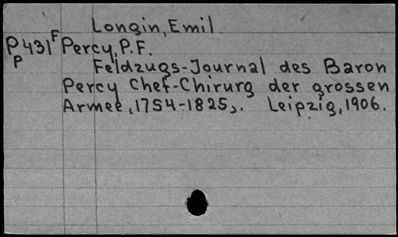 Longin, Emil
P431F Percy, P.F.
P Feldzugs-Journal des Baron
Percy Chef-Chirurg der grossen
Armee, 1754-1825,. Leipzig, 1906.